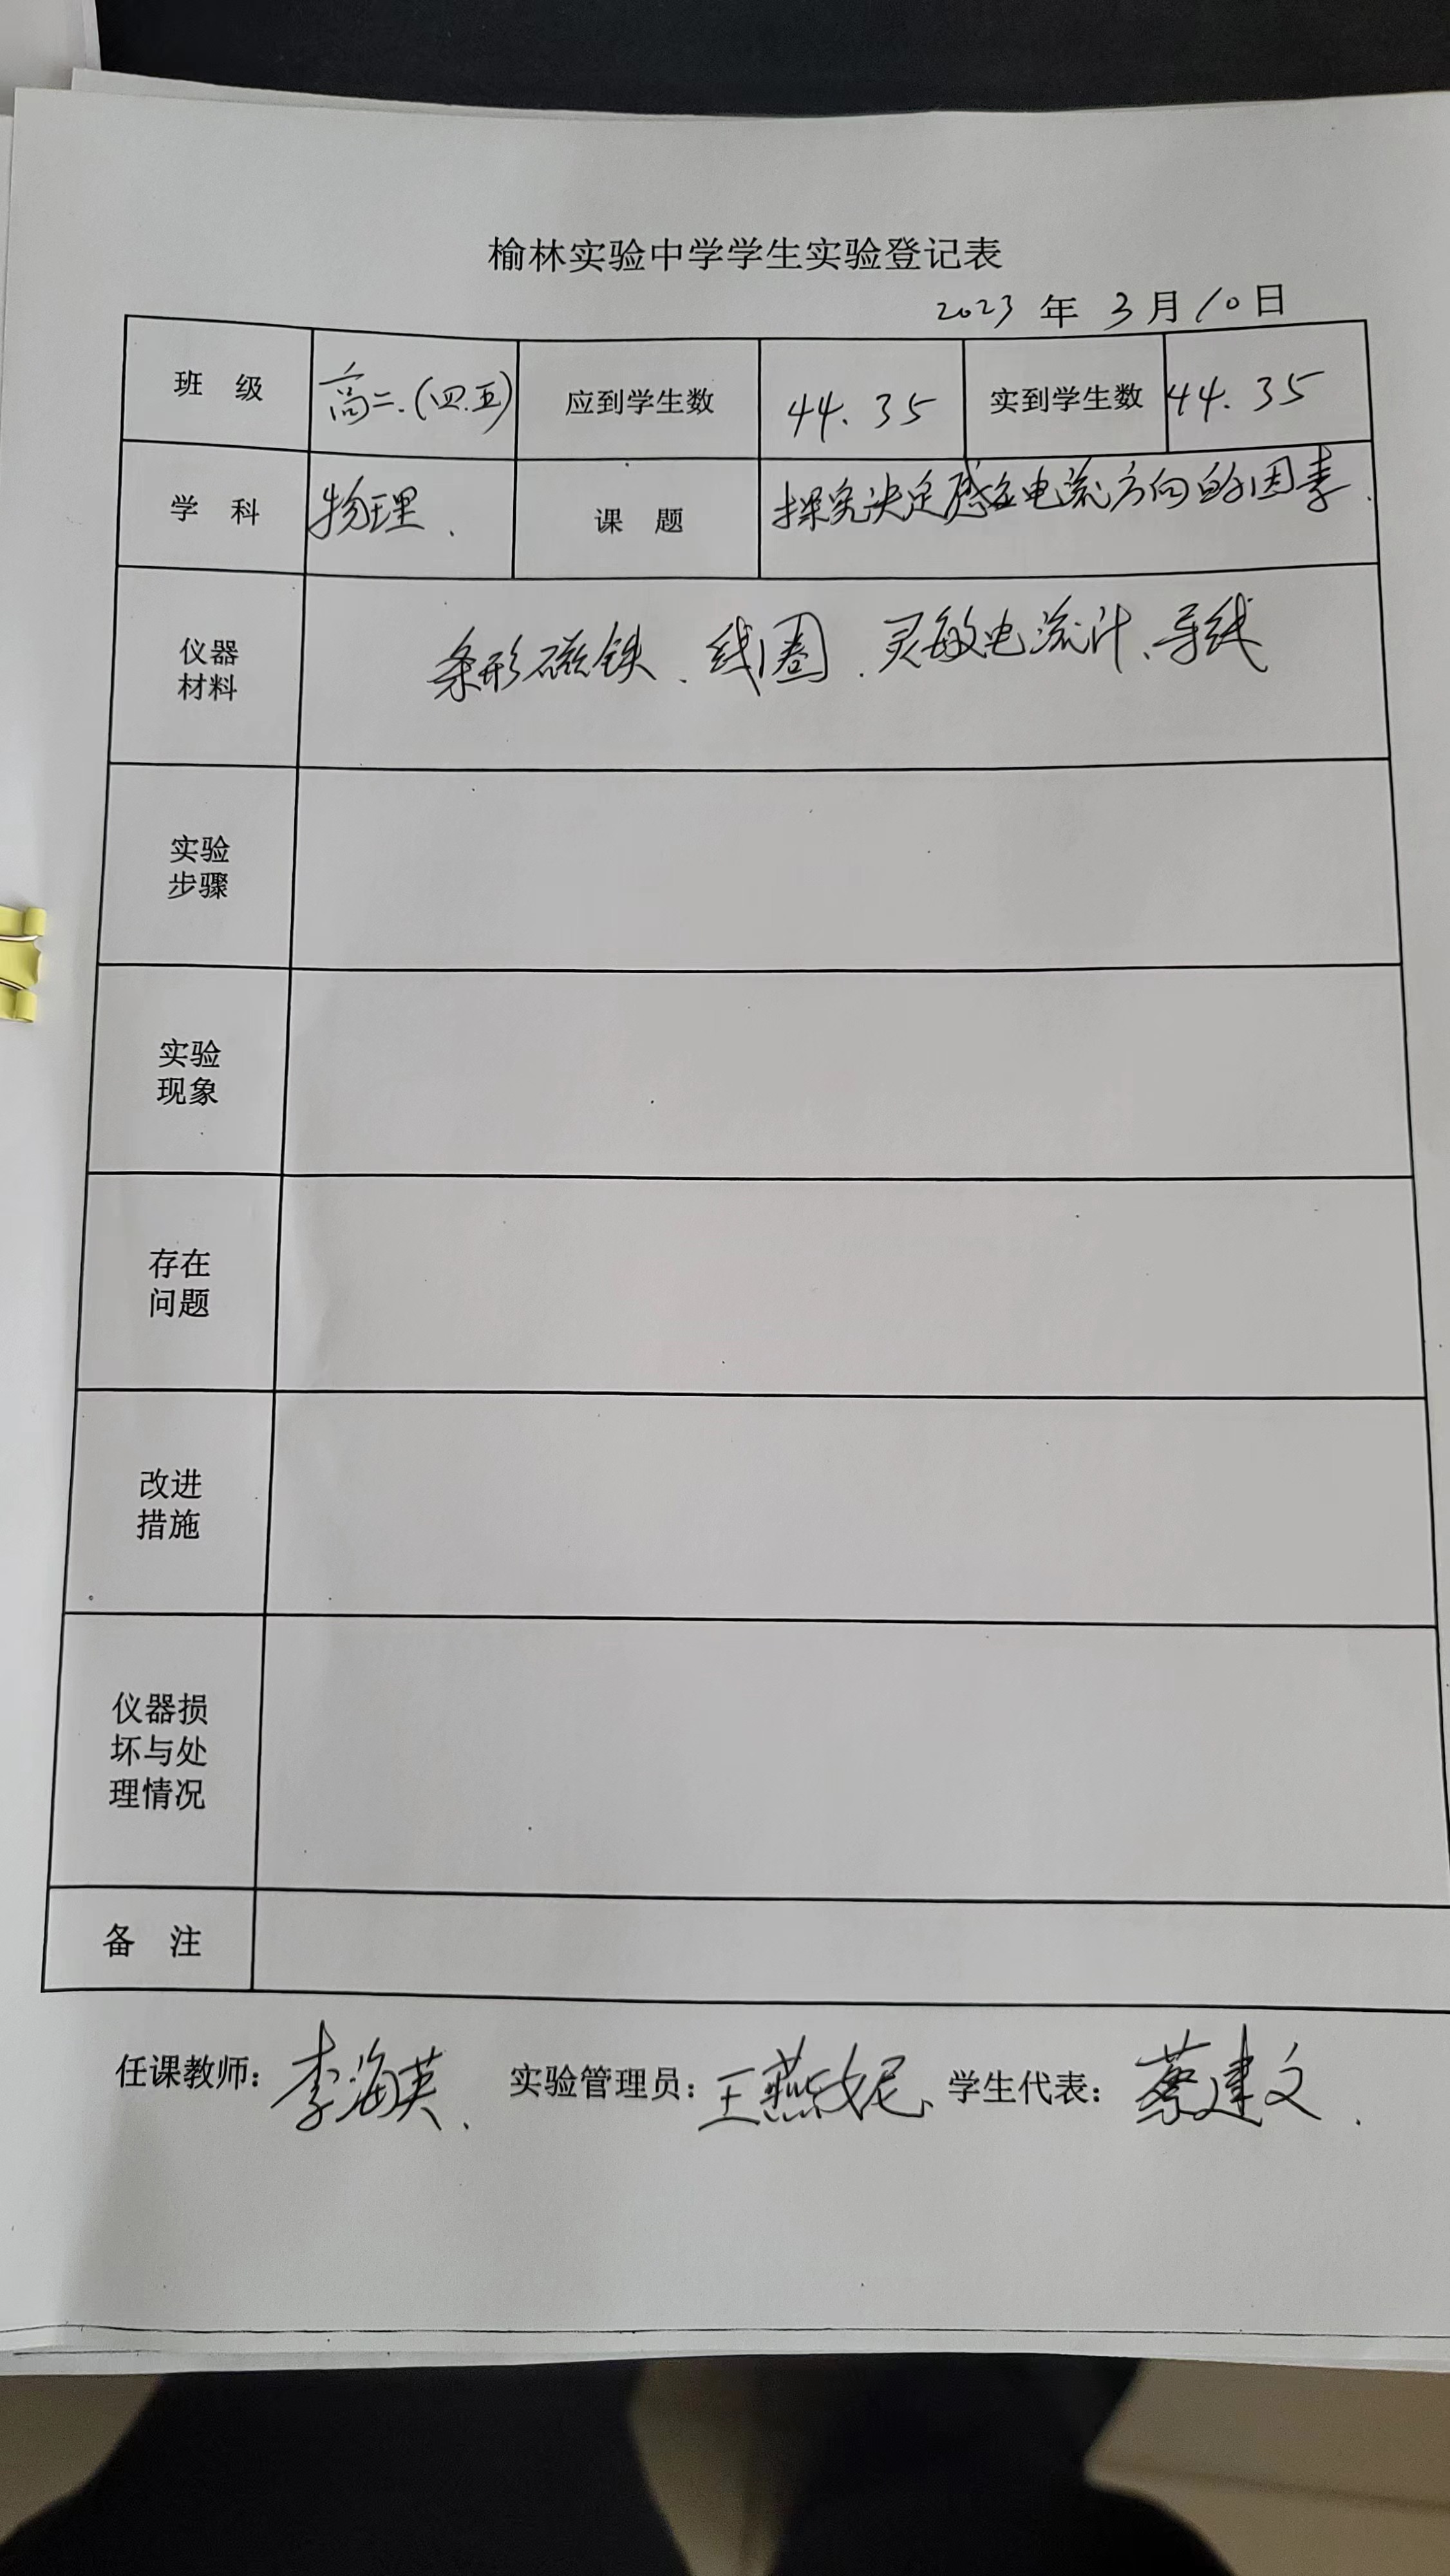 榆林实验中学学生实验登记表
2023 年 3 月 10 日
班 级 高二.(四.五) 应到学生数 44. 35 实到学生数 44. 35
学 科 物理. 课 题 探究决定感应电流方向的因素.
仪器
材料
条形磁铁、线圈、灵敏电流计、导线
实验
步骤
实验
现象
存在
问题
改进
措施
仪器损
坏与处
理情况
备 注
任课教师: 李海英. 实验管理员: 王燕妮、 学生代表: 蔡建文.